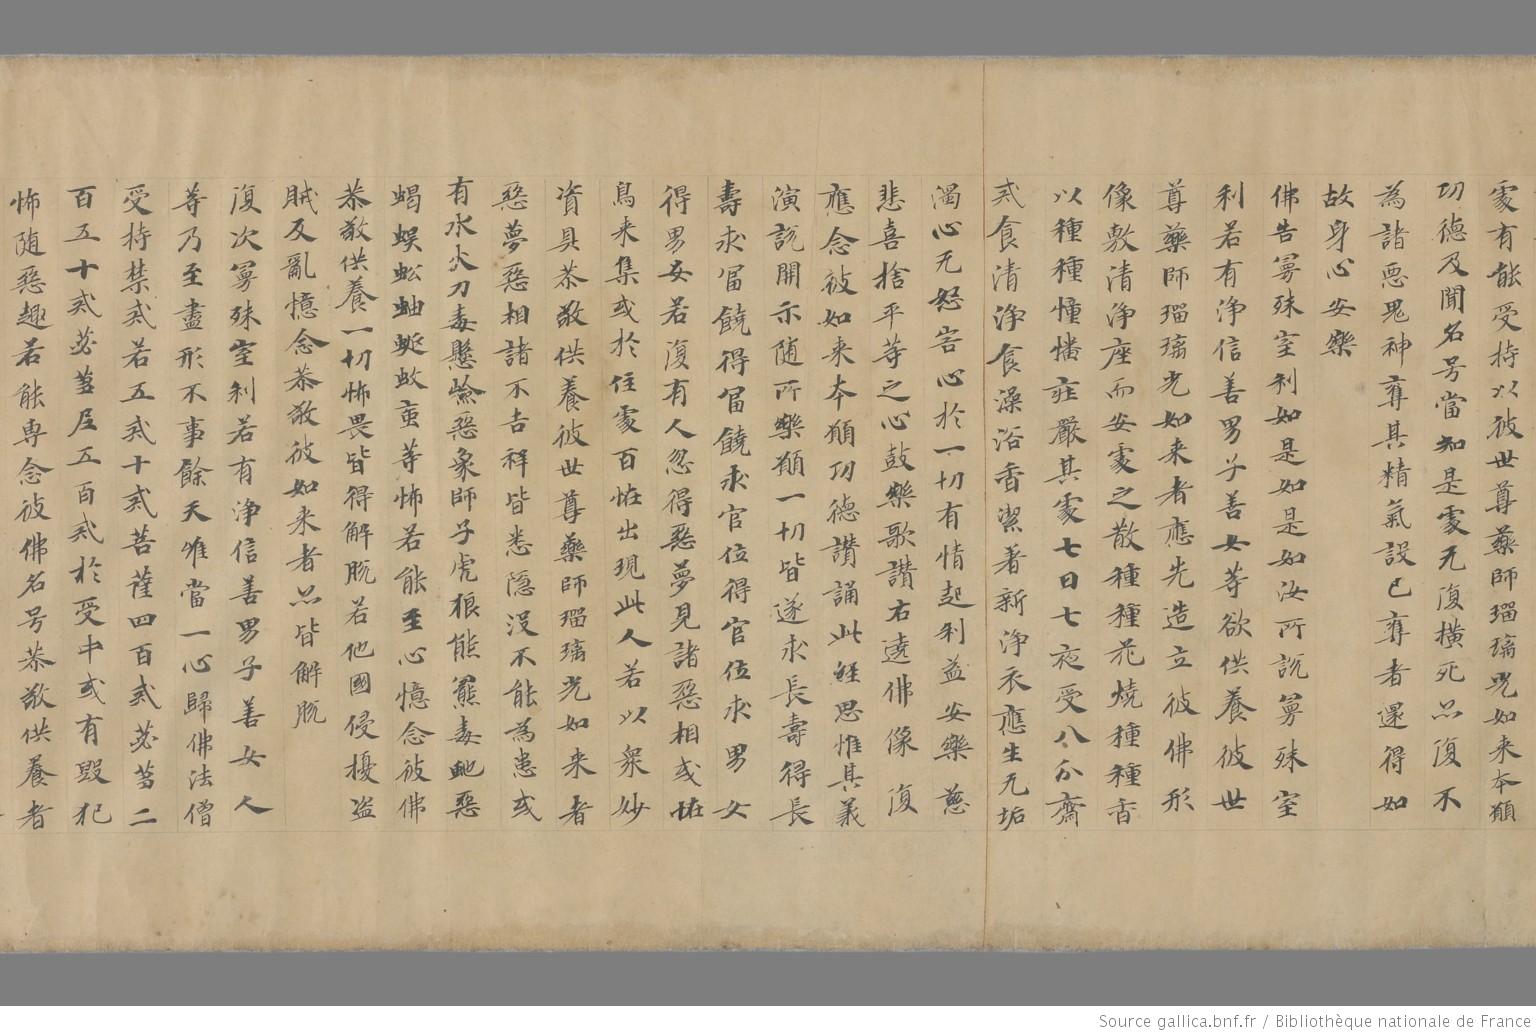 處有能受持以彼世尊藥師瑠璃光如来本願
功德及聞名号當知是處无復横死亦復不
為諸惡鬼神奪其精氣設已奪者還得如
故身心安樂
佛告曼殊室利如是如是如汝所說曼殊室
利若有淨信善男子善女等欲供養彼世
尊藥師瑠璃光如来者應先造立彼佛形
像敷清淨座而安處之散種種花燒種種香
以種種幢幡莊嚴其處七日七夜受八分齋
戒食清淨食澡浴香潔著新淨衣應生无垢
濁心无怒害心於一切有情起利益安樂慈
悲喜捨平等之心鼓樂歌讚右遶佛像復
應念彼如来本願功德讚誦此經思惟其義
演說開示随所樂願一切皆遂求長壽得長
壽求冨饒得冨饒求官位得官位求男女
得男女若復有人忽得惡夢見諸惡相或恠
鳥来集或於住處百恠出現此人若以衆妙
資具恭敬供養彼世尊藥師瑠璃光如来者
惡夢惡相諸不吉祥皆悉隱沒不能為患或
有水火刀毒懸嶮惡象師子虎狼熊羆毒虵惡
蝎蜈蚣蚰蜒蚊䖟等怖若能至心憶念彼佛
恭敬供養一切怖畏皆得解脫若他國侵擾盗
賊反亂憶念恭敬彼如来者亦皆解脫
復次曼殊室利若有淨信善男子善女人
等乃至盡形不事餘天唯當一心歸佛法僧
受持禁戒若五戒十戒菩薩四百戒苾芻二
百五十戒苾芻尼五百戒於受中或有毀犯
怖随惡趣若能専念彼佛名号恭敬供養者